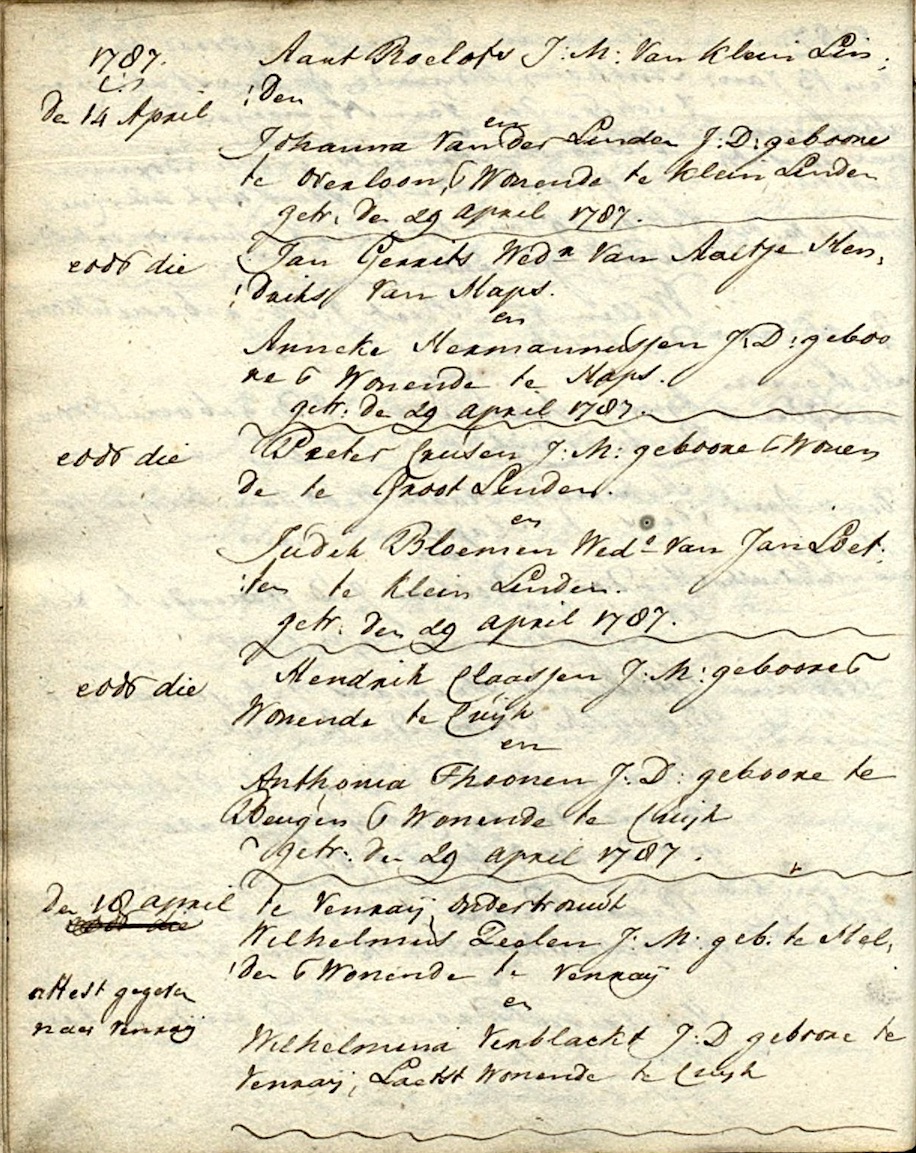 1787.
den 14 April
Aart Roelofs J: M: van klein Lin,
:den
en
Johanna van der Linden J: D: geboore
te Overloon, & Wonende te klein Linden
getr: den 29 april 1787.
eodem die
Jan Gerrits Wedr van Aaltje Hen,
:driks van Haps.
en
Anneke Hermanussen J: D: geboo
re & Wonende te Haps.
getr: de 29 april 1787.
eodem die
Peter Crusen J: M: geboore & Wonen
de te Groot Linden.
en
Judek Bloemen Wede van Jan Loef:
:ten te klein Linden.
getr: den 29 april 1787.
eodem die
Hendrik Claassen J: M: geboore &
Wonende te Cuijk
en
Anthonia Thoonen J: D: geboore te
Beugen & Wonende te Cuijk
getr: den 29 april 1787.
den 18 april
te Venraij, ondertrouwt
Wilhelmus Zeelen J: M: geb: te Hel,
:den & Wonende te Venraij
attest gegeven
naar Venraij
en
Wilhelmina Verblackt J: D geboore te
Venraij, Laetst Wonende te Cuijk